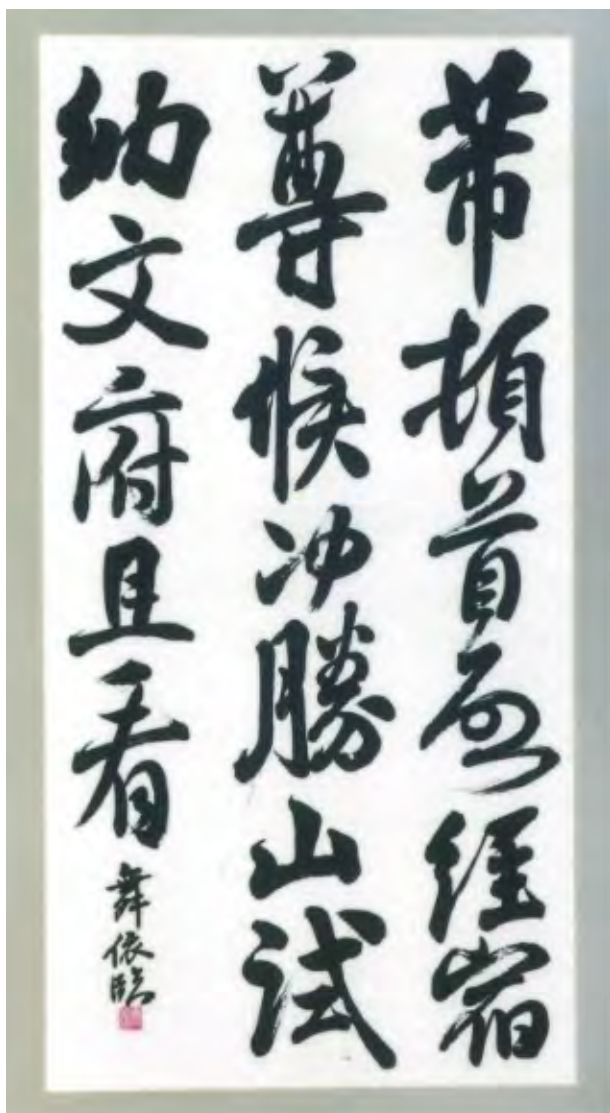 芾頓首啟經宿
尊候冲勝山試
納文府且看
舞依臨